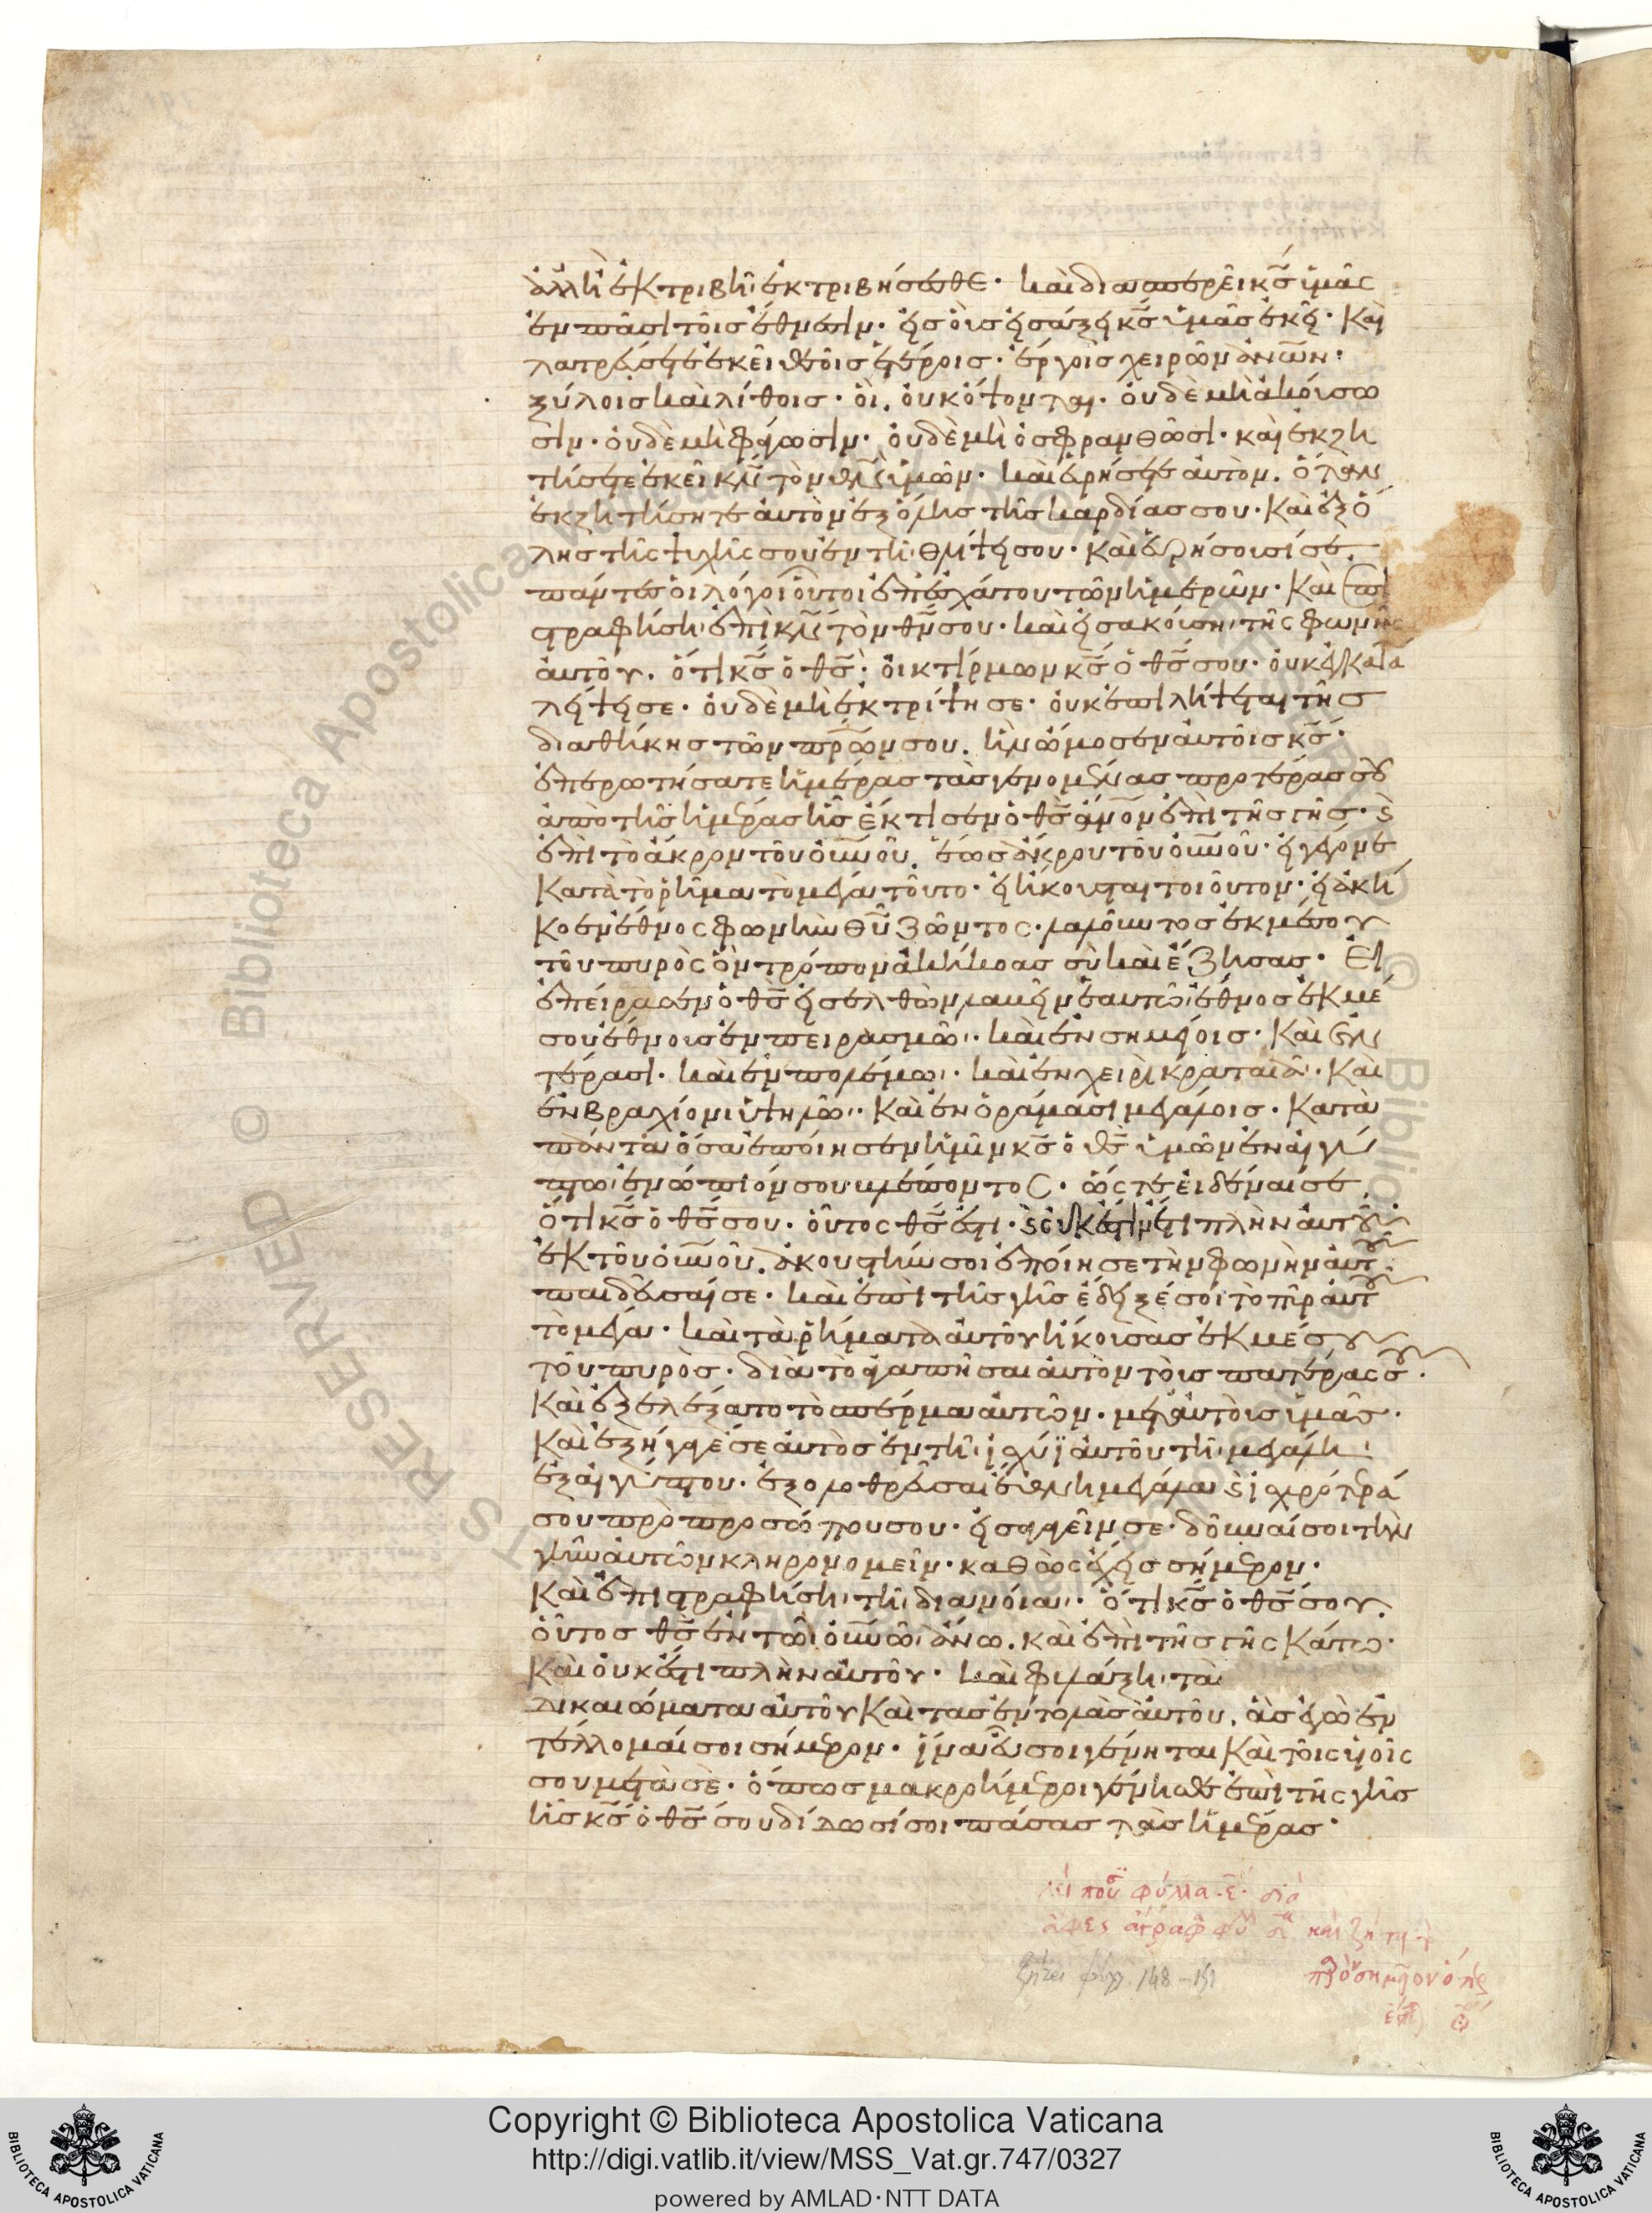 ἀλλὴ ἐκτριβῆ ἐκτριβήσεσθε· καὶ διασπερεῖ κ̅ς̅ ὑμᾶς
ἐν πᾶσι τοῖς ἔθνεσιν· εἰς οὓς εἰσάξει κ̅ς̅ ὑμᾶς ἐκεῖ· Καὶ
λατρεύσετε ἐκεῖ θεοῖς ἑτέροις· ἔργοις χειρῶν ἀν̅ω̅ν·
ξύλοις καὶ λίθοις· οἳ οὐκ ὄψονται· οὐδὲ μὴ ἀκούσω
σιν· οὐδὲ μὴ φάγωσιν· οὐδὲ μὴ ὀσφρανθῶσι· καὶ ἐκζη
τήσετε ἐκεῖ κ̅ν̅ τὸν θ̅ν̅ ὑμῶν· καὶ εὑρήσετε αὐτὸν. ὅταν
ἐκζητήσητε αὐτὸν ἐξ ὅλης τῆς καρδίας σου· Καὶ ἐξ ὅ
λης τῆς ψυχῆς σου ἐν τῇ θλίψει σου· καὶ εὑρήσουσί σε
πάντες οἱ λόγοι οὗτοι ἐπ' ἐσχάτου τῶν ἡμερῶν· Καὶ ἐπι
στραφήσῃ ἐπὶ κ̅ν̅ τὸν θ̅ν̅ σου· καὶ εἰσακούσῃ τῆς φωνῆς
αὐτοῦ. ὅτι κ̅ς̅ ὁ θ̅ς̅· οἰκτίρμων κ̅ς̅ ὁ θ̅ς̅ σου· οὐκ ἐγκατα
λείψει σε· οὐδὲ μὴ ἐκτρίψη σε· οὐκ ἐπιλήψεται τῆς
διαθήκης τῶν π̅ρ̅ω̅ν σου. ἣν ὤμοσεν αὐτοῖς κ̅ς̅·
ἐπερωτήσατε ἡμέρας τὰς γενομένας προτέρας σου
ἀπὸ τῆς ἡμέρας ἧς ἔκτισεν ὁ θ̅ς̅ ἀ̅ν̅ο̅ν ἐπὶ τῆς γῆς· ϗ
ἐπὶ τὸ ἄκρον τοῦ οὐ̅ν̅οῦ. ἕως ἄκρου τοῦ οὐ̅ν̅οῦ· εἰ γέγονε
Κατὰ τὸ ῥῆμα τὸ μέγα τοῦτο· εἰ ἤκουσται τοιοῦτον· εἰ ἀκή
κοεν ἔθνος φωνὴν θ̅υ̅ ζῶντος· λαλοῦντος ἐκ μέσου
τοῦ πυρὸς ὃν τρόπον ἀκήκοας σὺ καὶ ἔζησας· Εἰ
ἐπείρασεν ὁ θ̅ς̅ εἰσελθὼν λαβεῖν ἑαυτῷ ἔθνος ἐκ μέ
σου ἔθνους ἐν πειρασμῷ· καὶ ἐν σημείοις· Καὶ ἐν
τέρασι· καὶ ἐν πολέμῳ· καὶ ἐν χειρὶ κραταιᾷ· Καὶ
ἐν βραχίονι ὑψηλῷ· Καὶ ἐν ὁράμασι μεγάλοις· Κατὰ
πάντα ὅσα ἐποίησεν ἡμῖν κ̅ς̅ ὁ θ̅ς̅ ὑμῶν ἐν αἰγύ
πτῳ ἐνώπιόν σου βλέποντος· ὥστε εἰδέναι σε
ὅτι κ̅ς̅ ὁ θ̅ς̅ σου· οὗτος θ̅ς̅ ἐστι· ϗ οὐκ ἔστιν ἔτι πλὴν αὐτοῦ
ἐκ τοῦ οὐ̅ν̅οῦ. ἀκουστήν σοι ἐποίησε τὴν φωνὴν αὐτοῦ·
παιδεῦσαί σε· καὶ ἐπὶ τῆς γῆς ἔδειξέ σοι τὸ πῦρ αὐτοῦ
τὸ μέγα· καὶ τὰ ῥήματα αὐτοῦ ἤκουσας ἐκ μέσου
τοῦ πυρὸς· διὰ τὸ ἀγαπῆσαι αὐτὸν τοὺς πατέρας σου·
Καὶ ἐξελέξατο τὸ σπέρμα αὐτῶν· μετ' αὐτοὺς ὑμᾶς·
Καὶ ἐξήγαγέ σε αὐτὸς ἐν τῇ ἰσχύϊ αὐτοῦ τῇ μεγάλῃ
ἐξ αἰγύπτου· ἐξολοθρεῦσαι ἔθνη μεγάλα ϗ ἰσχυρότερά
σου πρὸ προσώπου σου· εἰσαγαγεῖν σε· δοῦναί σοι τὴν
γῆν αὐτῶν κληρονομεῖν· καθὼς ἔχεις σήμερον·
Καὶ ἐπιστραφήσῃ τῇ διανοίᾳ· ὅτι κ̅ς̅ ὁ θ̅ς̅ σου
οὗτος θ̅ς̅ ἐν τῷ οὐ̅ν̅ῷ ἄνω. καὶ ἐπὶ τῆς γῆς κάτω·
Καὶ οὐκ ἔστι πλὴν αὐτοῦ· καὶ φυλάξῃ τὰ
δικαιώματα αὐτοῦ Καὶ τὰς ἐντολὰς αὐτοῦ. ἃς ἐγὼ ἐν
τέλλομαί σοι σήμερον· ἵνα εὖ σοι γένηται Καὶ τοῖς υἱοῖς
σου μετὰ σὲ· ὅπως μακροήμεροι γένησθε ἐπὶ τῆς γῆς
ἧς κ̅ς̅ ὁ θ̅ς̅ σου δίδωσί σοι πάσας τὰς ἡμέρας·
φύλλα ε̅
ζήτει φύλλ. 148-151
Copyright © Biblioteca Apostolica Vaticana
http://digi.vatlib.it/view/MSS_Vat.gr.747/0327
powered by AMLAD·NTT DATA
BIBLIOTECA APOSTOLICA VATICANA
BIBLIOTECA APOSTOLICA VATICANA